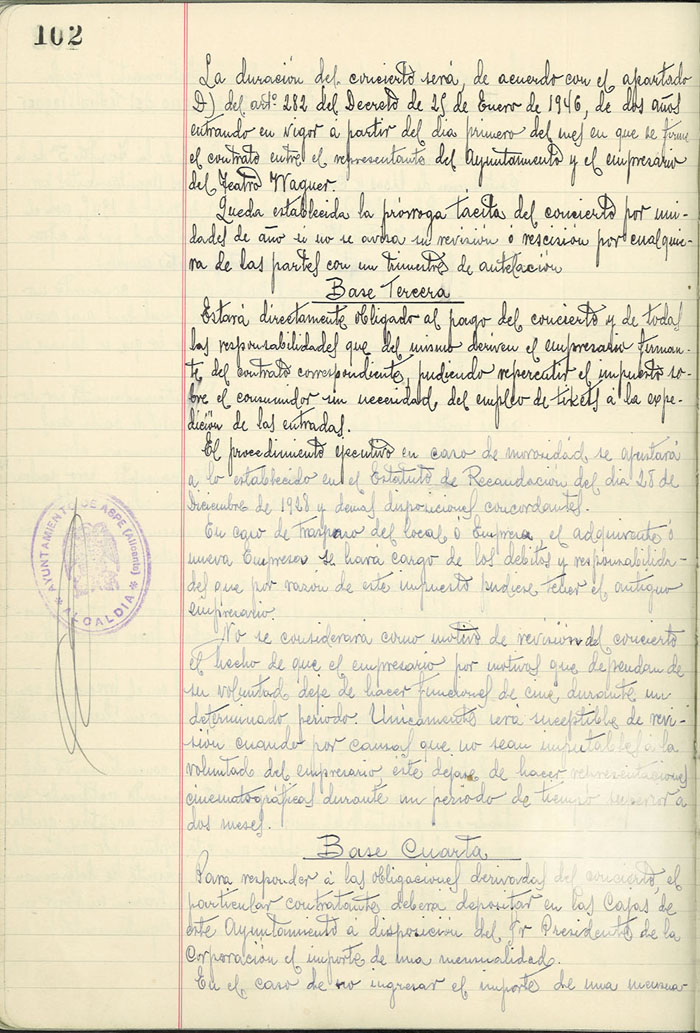 102
La duración del concierto será, de acuerdo con el apartado
D) del artº 282 del Decreto de 25 de Enero de 1946, de dos años
entrando en vigor á partir del dia primero del mes en que se firme
el contrato entre el representante del Ayuntamiento y el empresario
del Teatro Wagner.
Queda establecida la prórroga tácita del concierto por uni-
dades de año si no se avisa su revisión ó rescisión por cualquie-
ra de las partes con un trimestre de antelación
Base Tercera
Estará directamente obligado al pago del concierto y de todas
las responsabilidades que del mismo deriven el empresario firman-
te del contrato correspondiente, pudiendo repercutir el impuesto so-
bre el consumidor sin necesidad del empleo de tikets á la expe-
dición de las entradas.
El procedimiento ejecutivo en caso de morosidad se ajustará
a lo establecido en el Estatuto de Recaudación del dia 28 de
Diciembre de 1928 y demas disposiciones concordantes.
En caso de traspaso del local ó Empresa, el adquirente ó
nueva Empresa se hará cargo de los débitos y responsabilida-
des que por razón de este impuesto pudiese tener el antiguo
empresario.
No se considerara como motivo de revisión del concierto
el hecho de que el empresario por motivos que dependan de
su voluntad deje de hacer funciones de cine durante un
determinado periodo. Unicamente será suceptible de revi-
sión cuando por causas que no sean imputables á la
voluntad del empresario, éste dejase de hacer representaciones
cinematográficas durante un periodo de tiempo superior a
dos meses.
Base Cuarta
Para responder á las obligaciones derivadas del concierto, el
particular contratante deberá depositar en las Cajas de
este Ayuntamiento á disposición del Sr Presidente de la
Corporación el importe de una mensualidad.
En el caso de no ingresar el importe de una mensua-
AYUNTAMIENTO DE ASPE (Alicante)
ALCALDIA